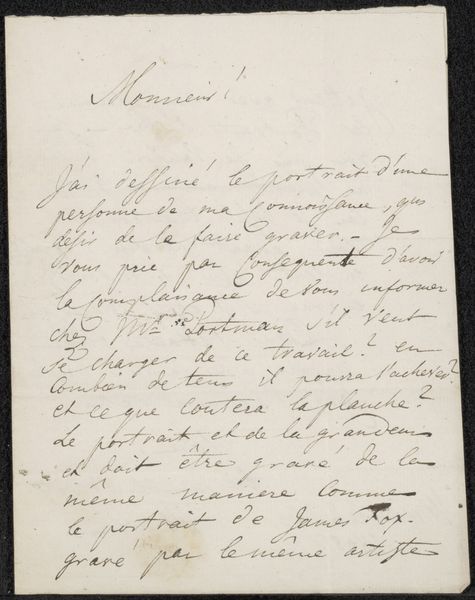 Monsieur!
J'ai dessiné le portrait d'une
personne de ma Connoissance, qui
désir de le faire graver. – Je
vous prie par Consequent d'avoir
la Complaisance de vous informer
chez Mr. Portman s'il veut
se charger de ce travail? en
Combien de tems il pourra l'achever?
et ce que coutera la planche?
Le portrait et de la grandeur
et doit être gravé de la
même maniere comme
le portrait de James Fox.
gravé par le même artiste